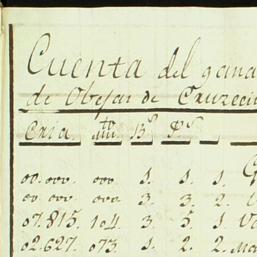 Cuenta del gana
de Obejas de Cruzeci
Cria. 13.s P.s
00.000. 000. 1. 1. 1.
00.000. 000. 3. 3. 2.
07.815. 104. 3. 5. 1.
02.627. 073. 1. 2. 2.